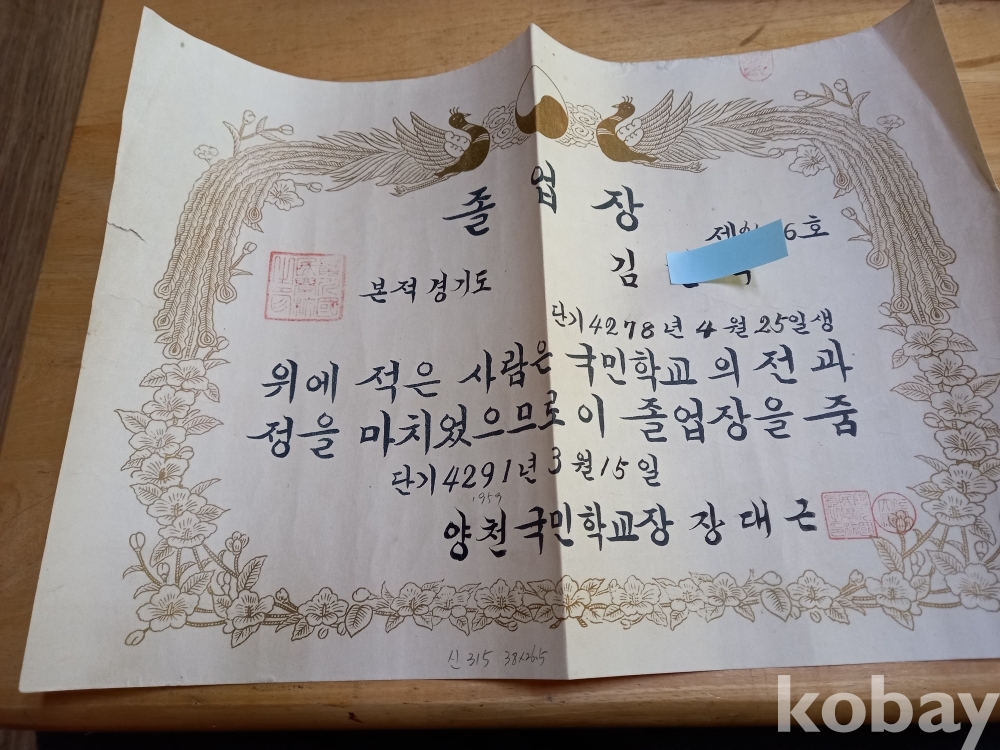 졸업장
제 6호
본적 경기도
김
단기 4278년 4월 25일생
위에 적은 사람은 국민학교의 전과
정을 마치었으므로 이 졸업장을 줌
단기 4291년 3월 15일
1959
양천국민학교장 장대근
신 315 38x26.5
kobay